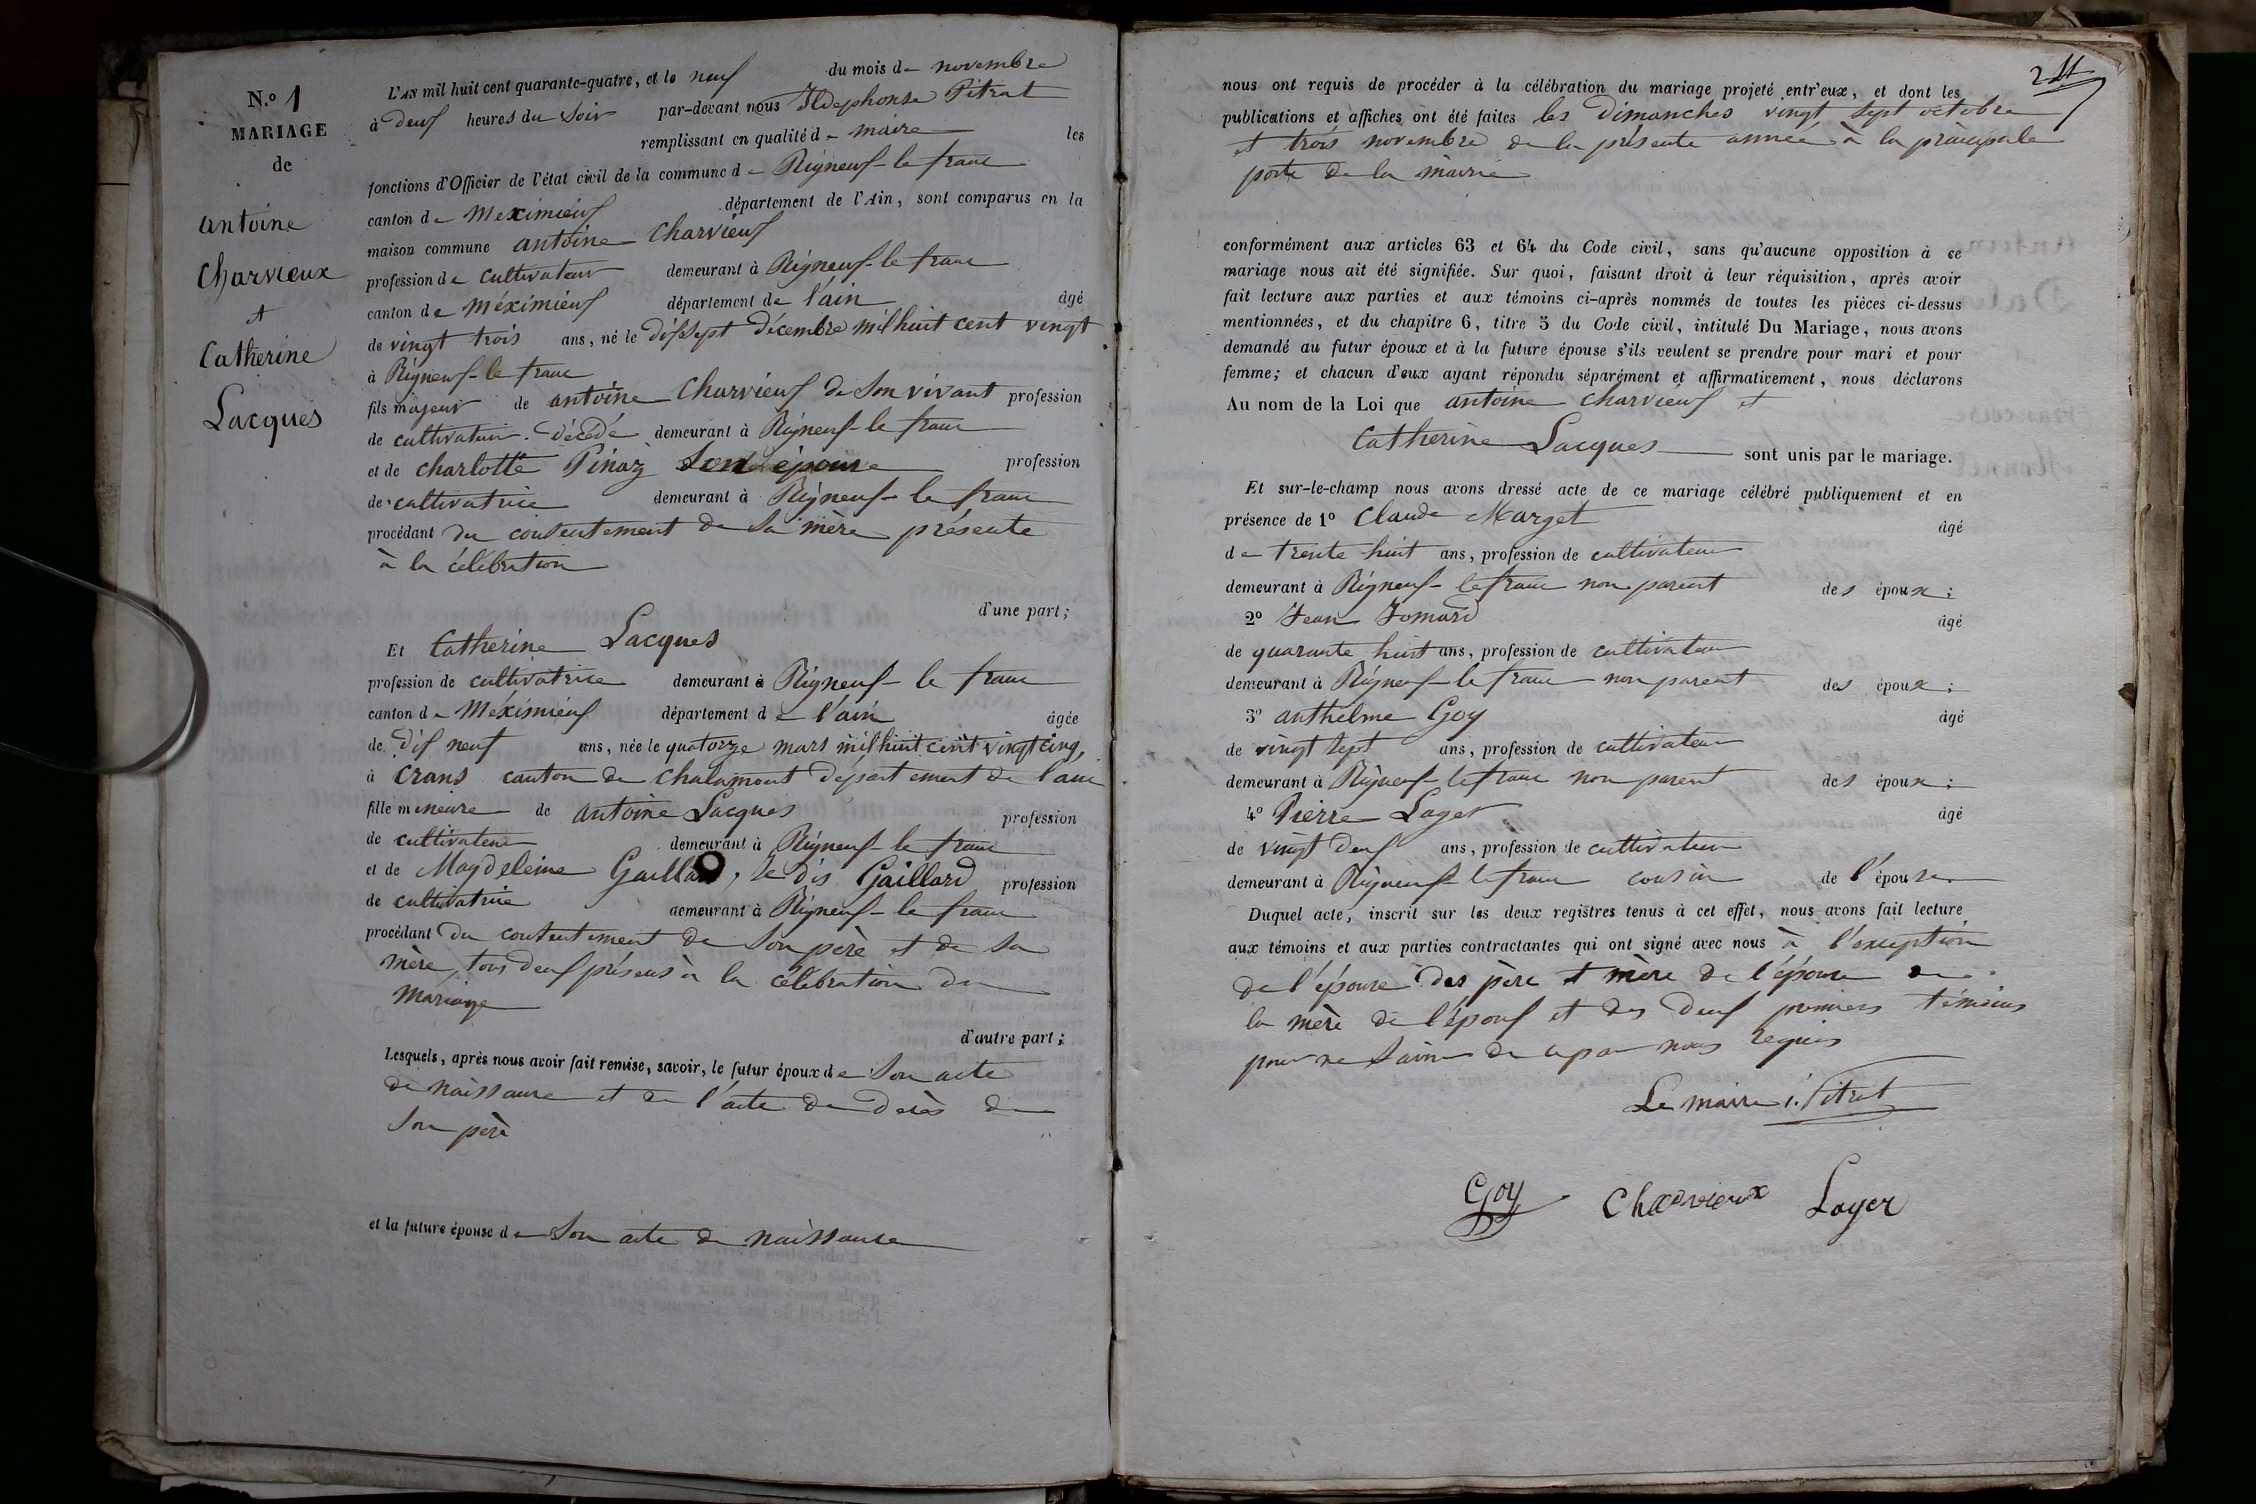 N.º 1
MARIAGE
de
antoine
Charvieux
et
Catherine
Lacques
L'AN mil huit cent quarante-quatre, et le neuf du mois de novembre
à deux heures du soir par-devant nous Ildephonse Pitrat
remplissant en qualité de maire les
fonctions d'Officier de l'état civil de la commune de Rigneux-le franc
canton de Meximieux département de l'Ain, sont comparus en la
maison commune antoine Charvieux
profession de cultivateur demeurant à Rigneux-le franc
canton de Méximieux département de l'ain âgé
de vingt trois ans, né le dix sept décembre mil huit cent vingt
à Rigneux-le franc
fils majeur de antoine Charvieux de son vivant profession
de cultivateur décédé demeurant à Rigneux-le franc
et de charlotte Pinaz son épouse profession
de cultivatrice demeurant à Rigneux-le franc
procédant du consentement de sa mère présente
à la célébration
d'une part;
Et Catherine Lacques
profession de cultivatrice demeurant à Rigneux-le franc
canton de Méximieux département de l'ain âgée
de dix neuf ans, née le quatorze mars mil huit cent vingt cinq,
à Crans canton de Chalamont département de l'ain
fille mineure de antoine Lacques profession
de cultivateur demeurant à Rigneux-le franc
et de Magdeleine Gaillard, je dis Gaillard profession
de cultivatrice demeurant à Rigneux-le franc
procédant du consentement de son père et de sa
mère, tous deux présens à la célébration du
mariage
d'autre part;
Lesquels, après nous avoir fait remise, savoir, le futur époux de son acte
de naissance et de l'acte de décès de
son père
et la future épouse de son acte de naissance
nous ont requis de procéder à la célébration du mariage projeté entr'eux, et dont les
publications et affiches ont été faites les dimanches vingt sept octobre
et trois novembre de la présente année à la principale
porte de la mairie
conformément aux articles 63 et 64 du Code civil, sans qu'aucune opposition à ce
mariage nous ait été signifiée. Sur quoi, faisant droit à leur réquisition, après avoir
fait lecture aux parties et aux témoins ci-après nommés de toutes les pièces ci-dessus
mentionnées, et du chapitre 6, titre 5 du Code civil, intitulé Du Mariage, nous avons
demandé au futur époux et à la future épouse s'ils veulent se prendre pour mari et pour
femme; et chacun d'eux ayant répondu séparément et affirmativement, nous déclarons
Au nom de la Loi que antoine Charvieux et
Catherine Lacques sont unis par le mariage.
Et sur-le-champ nous avons dressé acte de ce mariage célébré publiquement et en
présence de 1º Claude Marget âgé
de trente huit ans, profession de cultivateur
demeurant à Rigneux-le franc non parent des époux;
2º Jean Jomard âgé
de quarante huit ans, profession de cultivateur
demeurant à Rigneux-le franc non parent des époux;
3º anthelme Goy âgé
de vingt sept ans, profession de cultivateur
demeurant à Rigneux-le franc non parent des époux;
4º Pierre Loyer âgé
de vingt deux ans, profession de cultivateur
demeurant à Rigneux-le franc cousin de l'épouse.
Duquel acte, inscrit sur les deux registres tenus à cet effet, nous avons fait lecture
aux témoins et aux parties contractantes qui ont signé avec nous à l'exception
de l'épouse des père et mère de l'épouse de
la mère de l'époux et des deux premiers témoins
pour ne savoir de ce par nous requis
Le maire i. Pitrat
Goy Charvieux Loyer